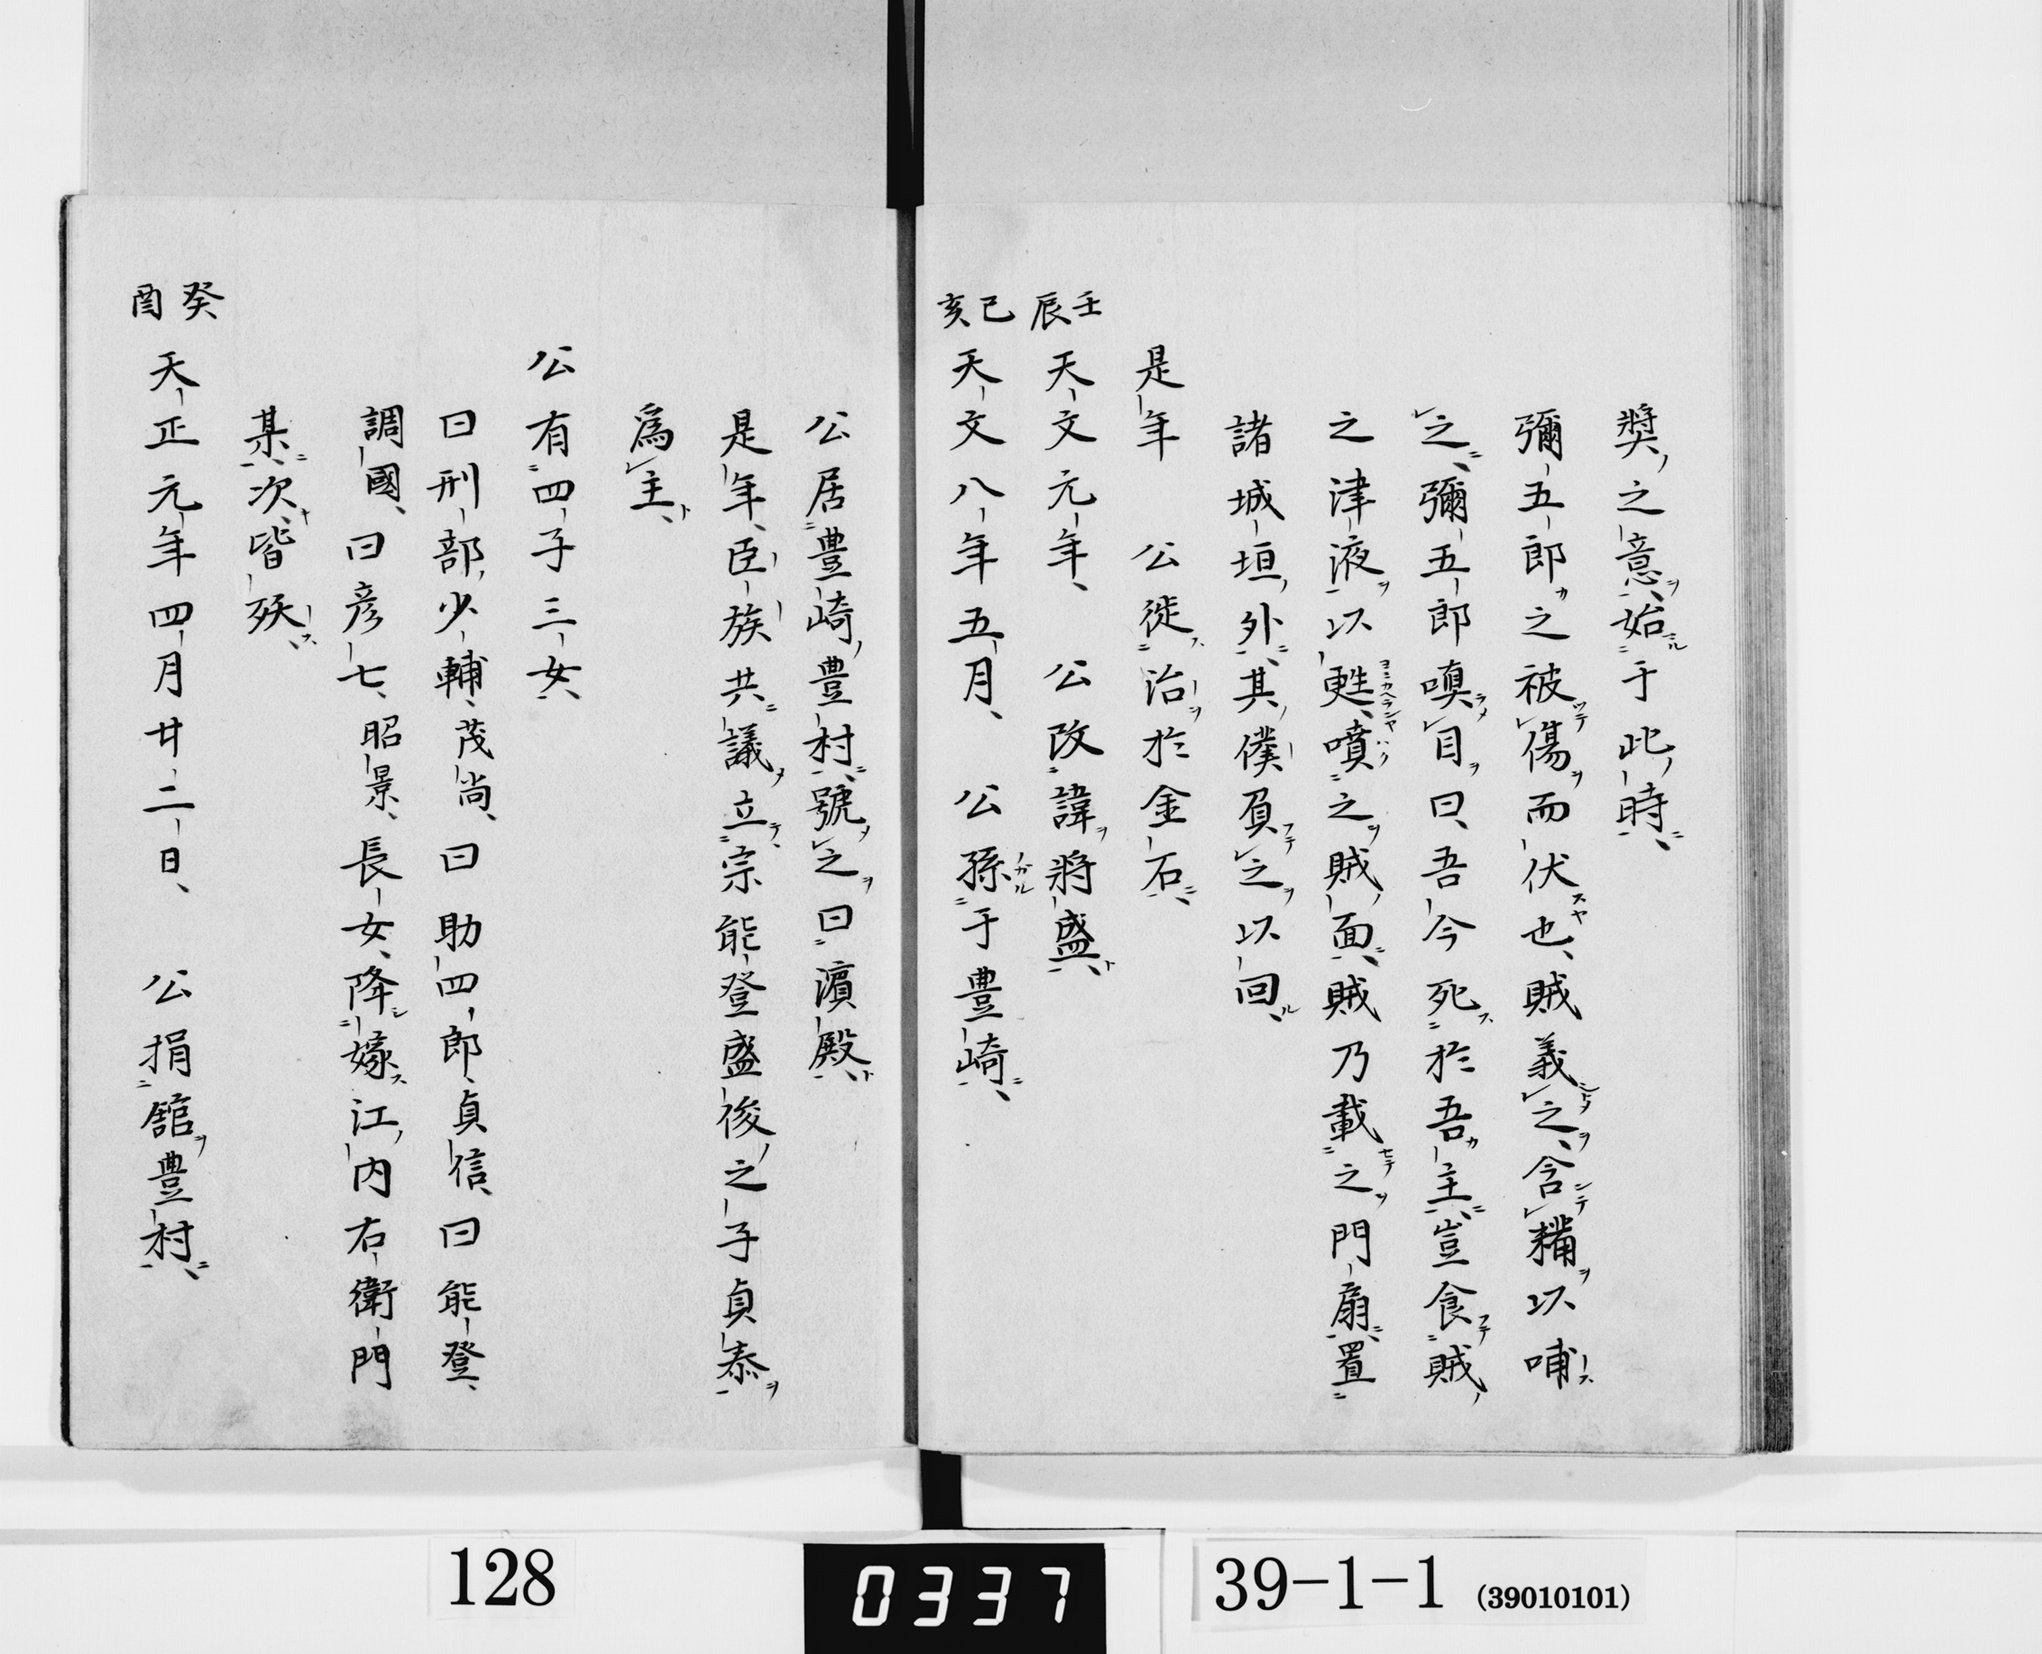 獎之意始于此時
彌五郎之被傷而伏也賊義之含糒以哺
之彌五郎嗔目曰吾今死於吾主豈食賊
之津液以甦噴之賊面賊乃載之門扇置
諸城垣外其僕負之以回
是年　公徙治於金石
壬辰 天文元年　公改諱將盛
己亥 天文八年五月　公孫于豊崎
公居豊崎豊村號之曰濵殿
是年臣族共議立宗能登盛俊之子貞泰
爲主
公有四子三女
曰刑部少輔茂尚曰助四郎貞信曰能登
調國曰彦七昭景長女降嫁江内右衛門
某次皆殀
癸酉 天正元年四月廿二日　公捐舘豊村
128
0337
39-1-1 (39010101)